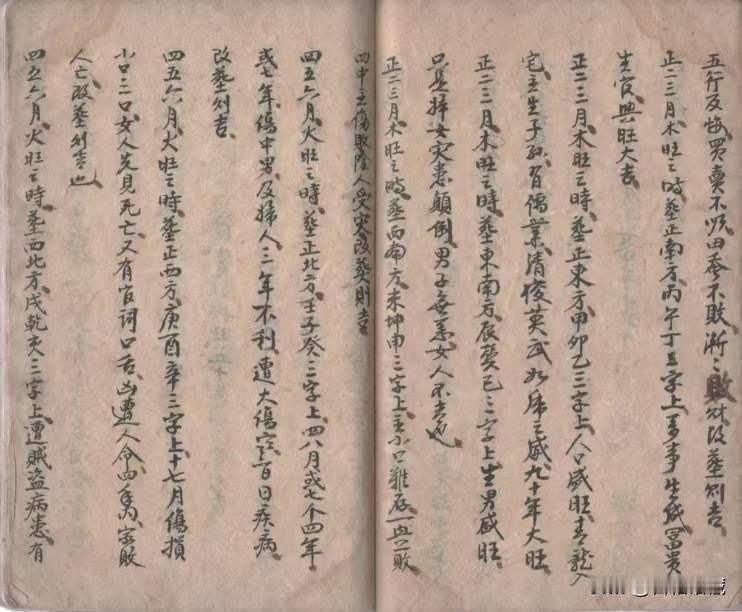 五行反悔買賣不順田蚕不敗漸〻敗財改墓則吉
正二三月木旺之時墓正南方丙午丁三字上多事生貴富貴
生官興旺大吉
正二三月木旺之時墓正東方甲卯乙三字上人口盛旺青龍入
宅主生子孫習儒業清俊英武如虎之威九十年大旺
正二三月木旺之時墓東南方辰巽巳三字上生男盛旺
只是婦女灾患顛倒男子無義女人不吉也
正二三月木旺之時墓西南方未坤申三字上主小口難存一興一敗
四中主傷敗陰人受灾改葬則吉
四五六月火旺之時墓正北方壬子癸三字上四八月或七个四年
或七年傷中男及婦人三年不利遭大傷官百日疾病
改墓則吉
四五六月火旺之時墓正西方庚酉辛三字上十七月傷損
小口三口女人先見死亡又有官詞口舌凶遭人命四年內家敗
人亡改墓則吉也
四五六月火旺之時墓西北方戌乾亥三字上遭賊盜病患有